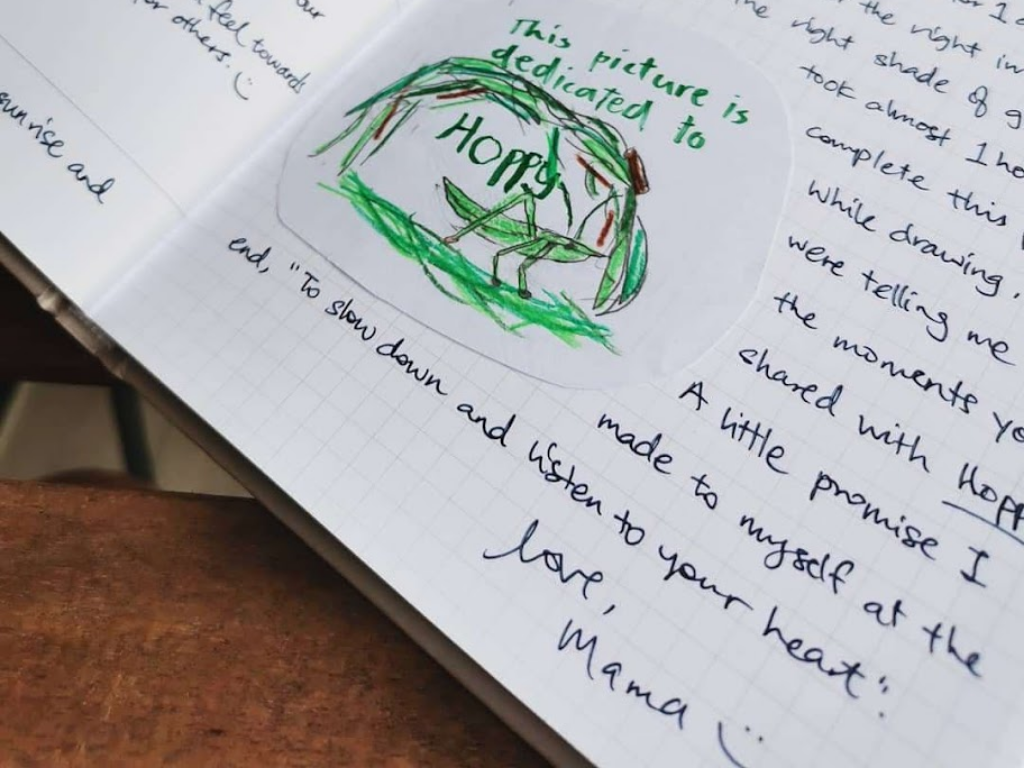 our
feel towards
for others. :)
sunrise and
This picture is
dedicated to
Hoppy
the right
the right shade of
took almost 1
complete this
While drawing,
were telling me
the moments
shared with
A little promise I
made to myself at the
end, "To slow down and listen to your heart".
Love,
Mama :)